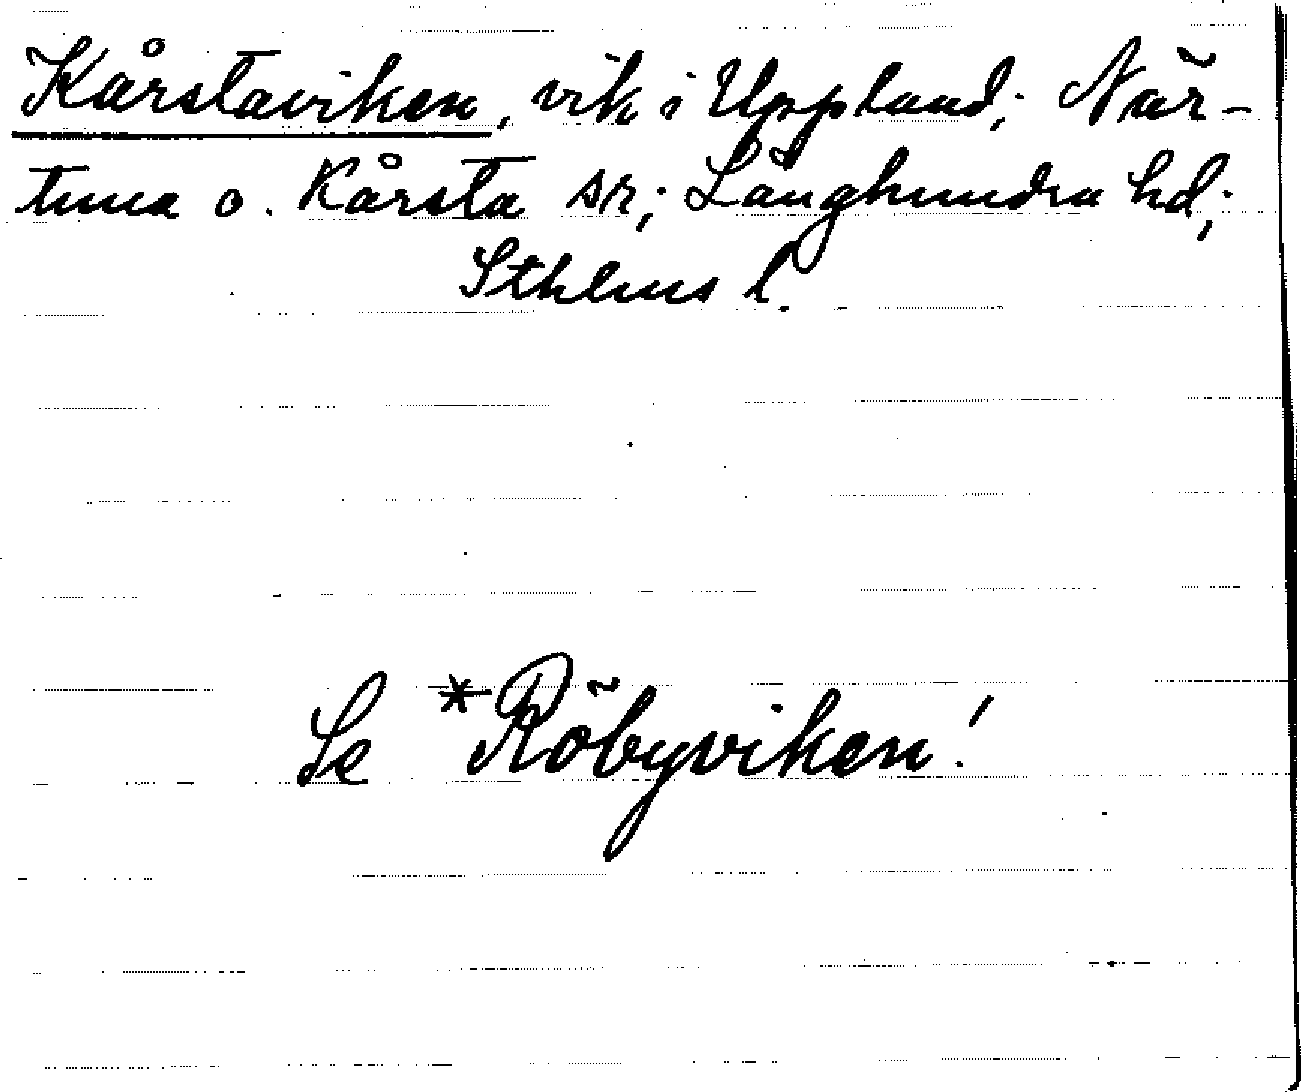 Kårstaviken, vik i Uppland; När-
tuna o. Kårsta sr; Långhundra hd;
Sthlms l.
Se *Röbyviken!